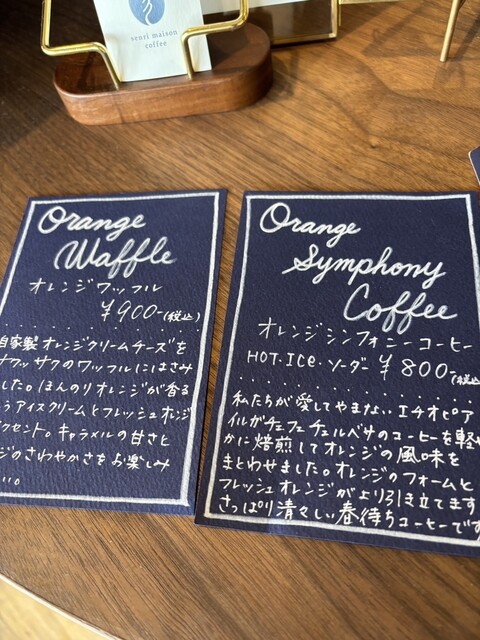 senri maison
coffee
Orange
Waffle
オレンジワッフル
¥900-(税込)
自家製オレンジクリームチーズを
サクのワッフルにはさみ
した。ほんのりオレンジが香る
アイスクリームとフレッシュオレンジ
クセント。キャラメルの甘さと
ジのさわやかさをお楽しみ
Orange
Symphony
Coffee
オレンジシンフォニーコーヒー
HOT・ICe・ソーダー ¥800-(税込
私たちが愛してやまないエチオピア
イルガチェフェチェルベサのコーヒーを軽や
かに焙煎してオレンジの風味を
まとわせました。オレンジのフォームと
フレッシュオレンジがより引き立てます
さっぱり清々しい春待ちコーヒーです